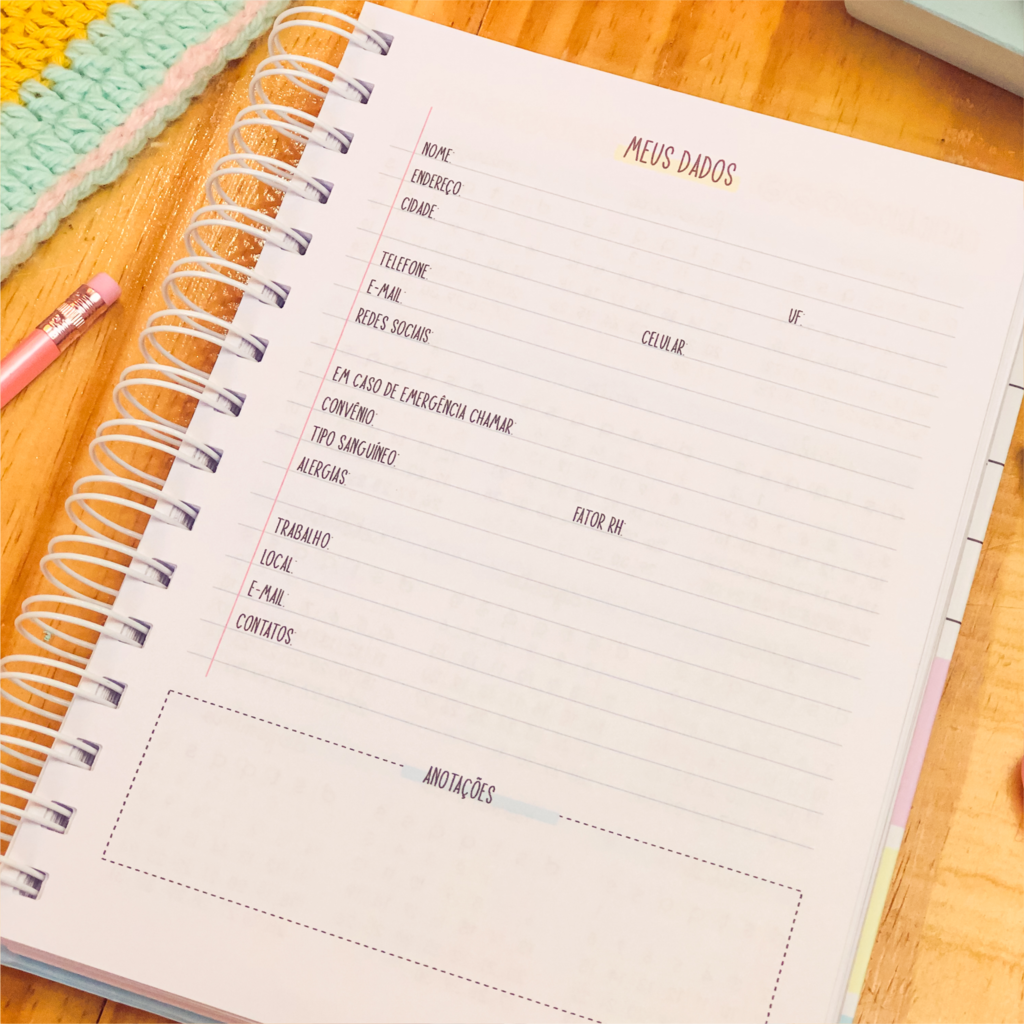 MEUS DADOS
NOME:
ENDEREÇO:
CIDADE: UF:
TELEFONE: CELULAR:
E-MAIL:
REDES SOCIAIS:
EM CASO DE EMERGÊNCIA CHAMAR:
CONVÊNIO:
TIPO SANGUÍNEO: FATOR RH:
ALERGIAS:
TRABALHO:
LOCAL:
E-MAIL:
CONTATOS:
ANOTAÇÕES